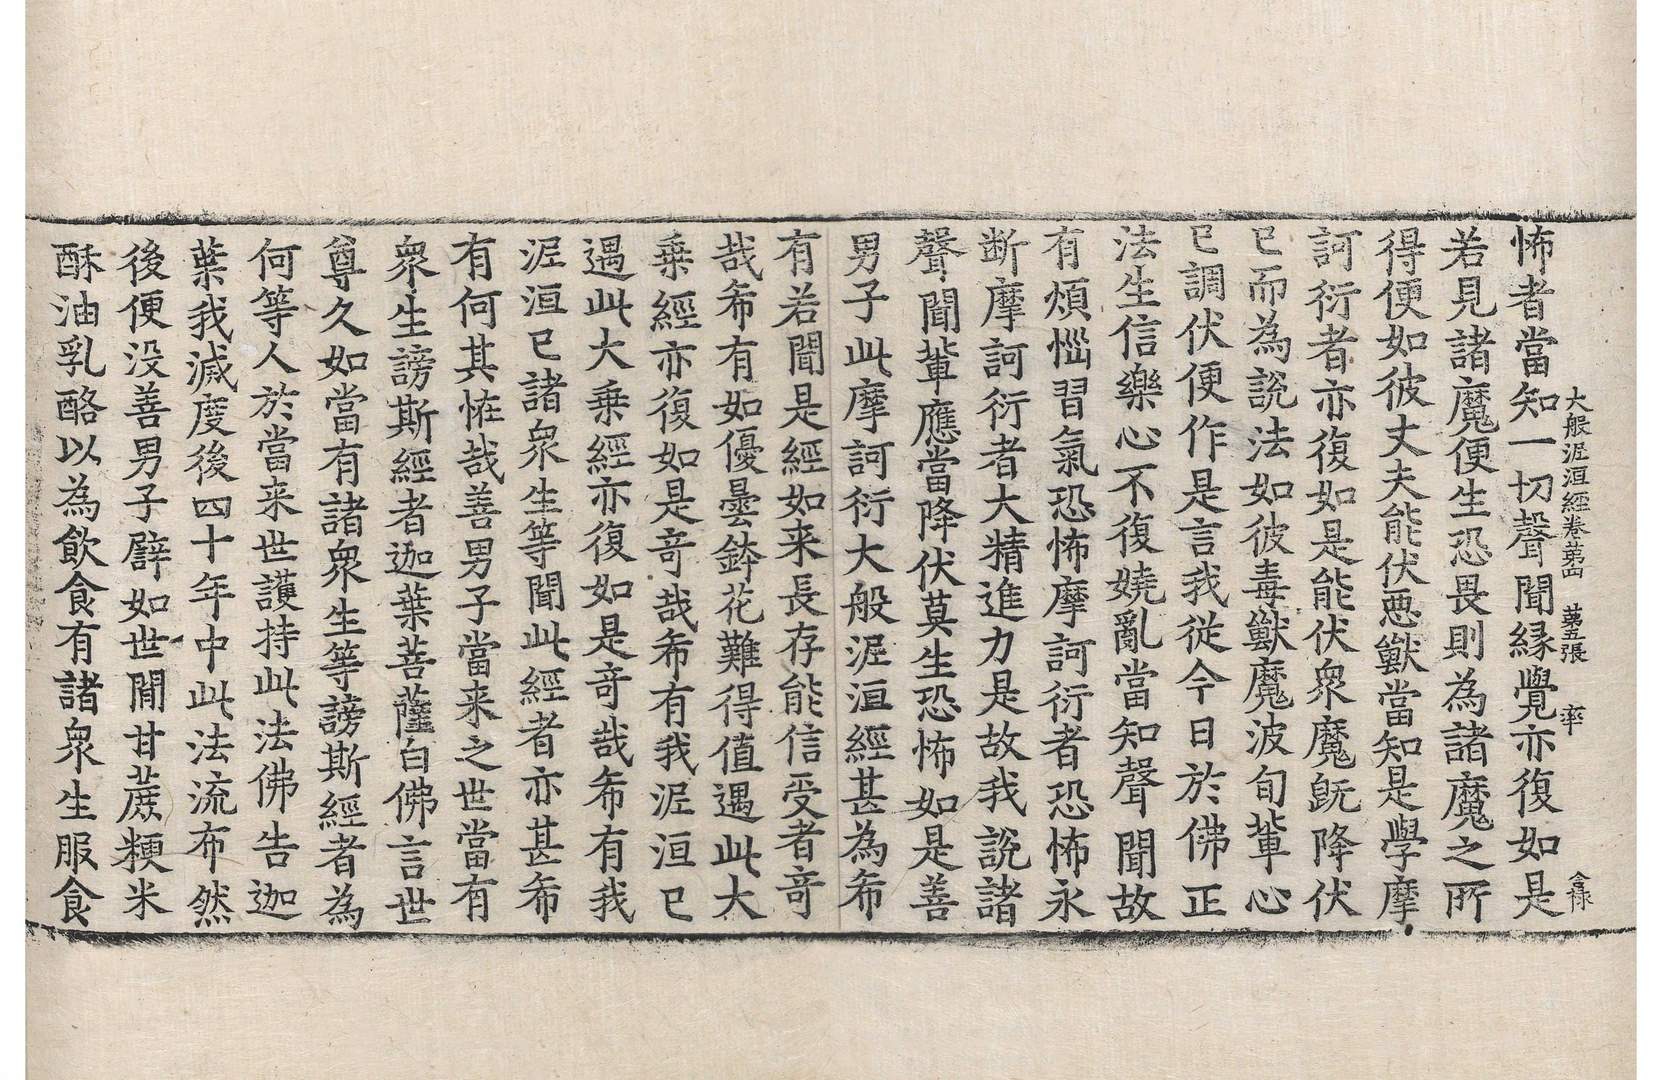 大般泥洹經卷第四 第五張 率 
怖者當知一切聲聞縁覺亦復如是
若見諸魔便生恐畏則為諸魔之所
得便如彼丈夫能伏惡獸當知是學摩
訶衍者亦復如是能伏衆魔旣降伏
已而為說法如彼毒獸魔波旬輩心
已調伏便作是言我從今日於佛正
法生信樂心不復嬈亂當知聲聞故
有煩惱習氣恐怖摩訶衍者恐怖永
断摩訶衍者大精進力是故我說諸
聲聞輩應當降伏莫生恐怖如是善
男子此摩訶衍大般泥洹經甚為希
有若聞是經如来長存能信受者竒
哉希有如優曇鉢花難得值遇此大
乗經亦復如是竒哉希有我泥洹已
遇此大乗經亦復如是竒哉希有我
泥洹已諸衆生等聞此經者亦甚希
有何其恠哉善男子當来之世當有
衆生謗斯經者迦葉菩薩白佛言世
尊久如當有諸衆生等謗斯經者為
何等人於當来世護持此法佛告迦
葉我滅度後四十年中此法流布然
後便没善男子譬如世間甘蔗粳米
酥油乳酪以為飲食有諸衆生服食